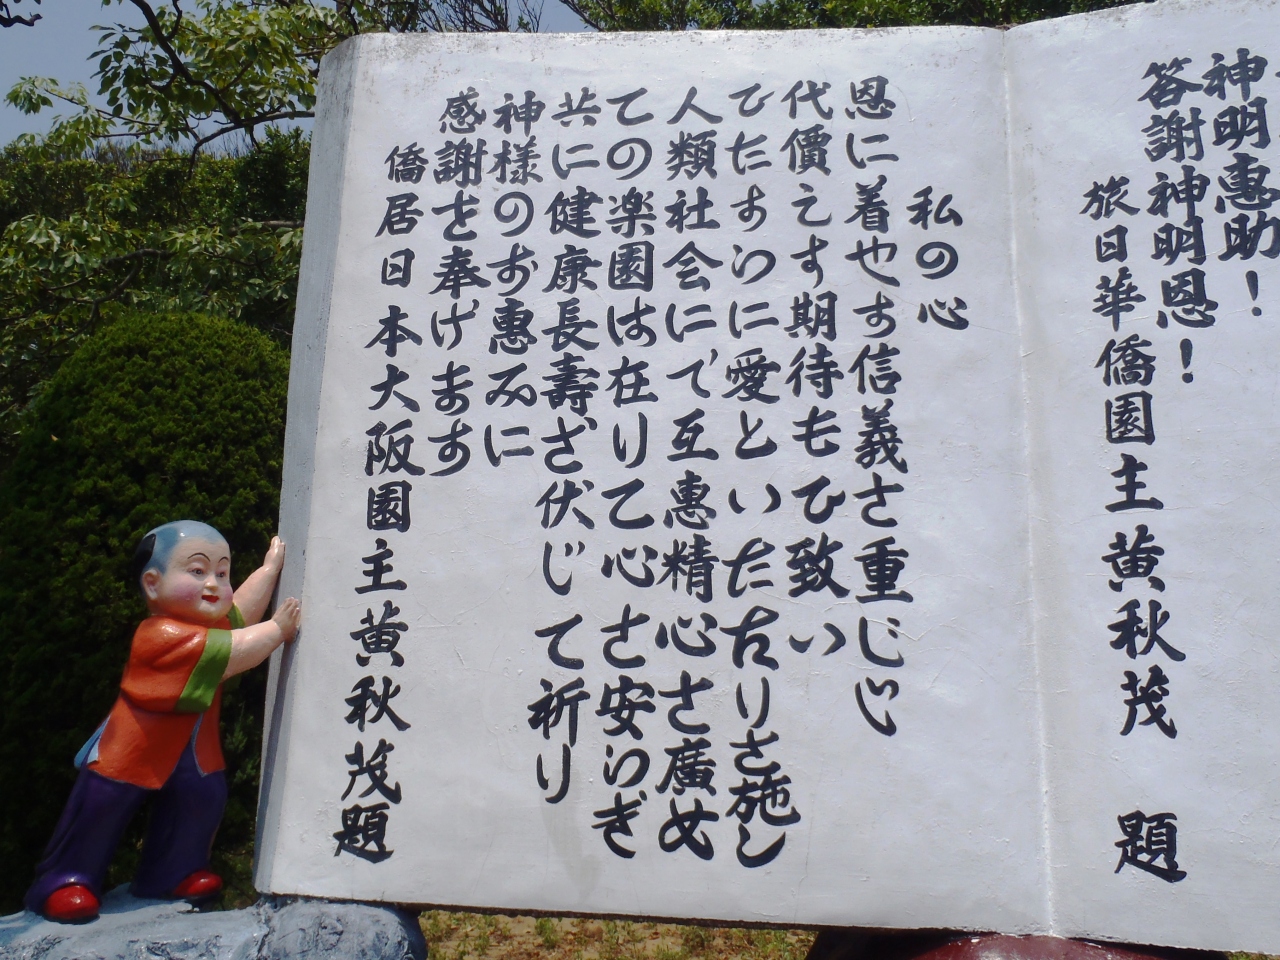 神明惠助！
答謝神明恩！
旅日華僑園主黄秋茂 題
私の心
恩に着やす信義さ重じい
代價えす期待もひ致い
ひたすらに愛といたわりさ施し
人類社会にで互惠精心さ廣め
ての楽園は在りて心さ安らぎ
共に健康長壽ざ伏じて祈り
神様のお惠みに
感謝を奉げます
僑居日本大阪園主黄秋茂題